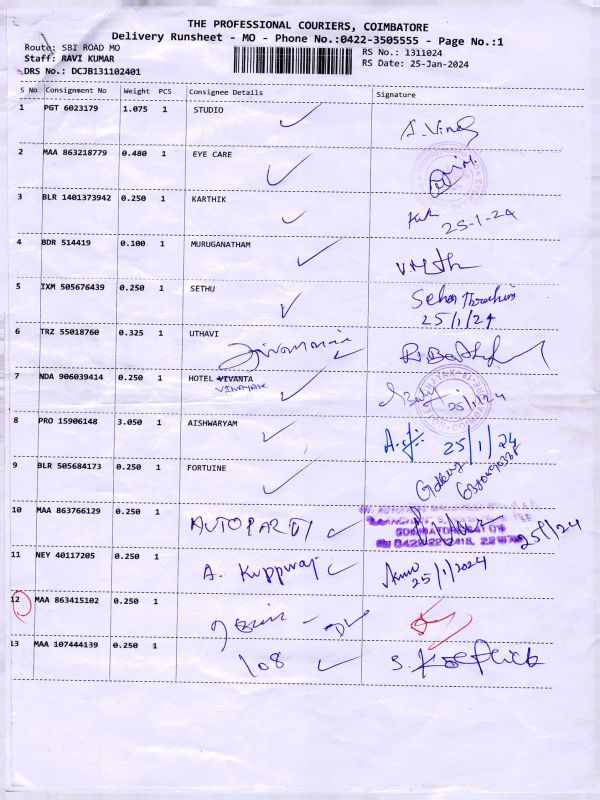 THE PROFESSIONAL COURIERS, COIMBATORE
Delivery Runsheet - MO - Phone No.:0422-3505555 - Page No.:1
Route: SBI ROAD MO
RS No.: 1311024
Staff: RAVI KUMAR
RS Date: 25-Jan-2024
DRS No.: DCJB131102401
S No Consignment No Weight PCS Consignee Details Signature
1 PGT 6023179 1.075 1 STUDIO
2 MAA 863218779 0.480 1 EYE CARE
3 BLR 1401373942 0.250 1 KARTHIK
25-1-24
4 BDR 514419 0.100 1 MURUGANATHAM
5 IXM 505676439 0.250 1 SETHU
25/1/24
6 TRZ 55018760 0.325 1 UTHAVI
7 NDA 906039414 0.250 1 HOTEL VIVANTA
VINAYAK
25/1/24
8 PRO 15906148 3.050 1 AISHWARYAM
25/1/24
9 BLR 505684173 0.250 1 FORTUINE
10 MAA 863766129 0.250 1
25/1/24
11 NEY 40117205 0.250 1 A. Kuppuraj
25/1/2024
12 MAA 863415102 0.250 1
13 MAA 107444139 0.250 1 108